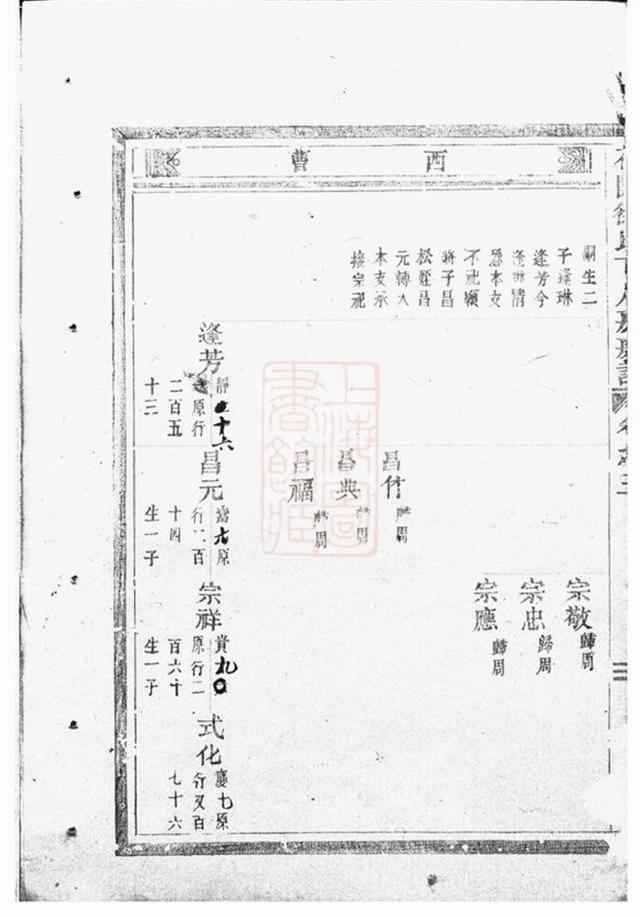 西曹
嗣生二
子逢琳
逢芳今
逢琳情
恐本支
不祀願
將子昌
松姪昌
元轉入
本支承
接宗祀
宗敬
歸周
宗忠
歸周
宗應
歸周
昌竹
歸周
昌典
歸周
昌福
歸周
逢芳
靜十六
原行
二百五
十三
昌元
原
行二百
十四
生一子
宗祥
貴九〇
原行二
百六十
生一子
式化
慶七原
行又百
七十六
上海圖書館藏